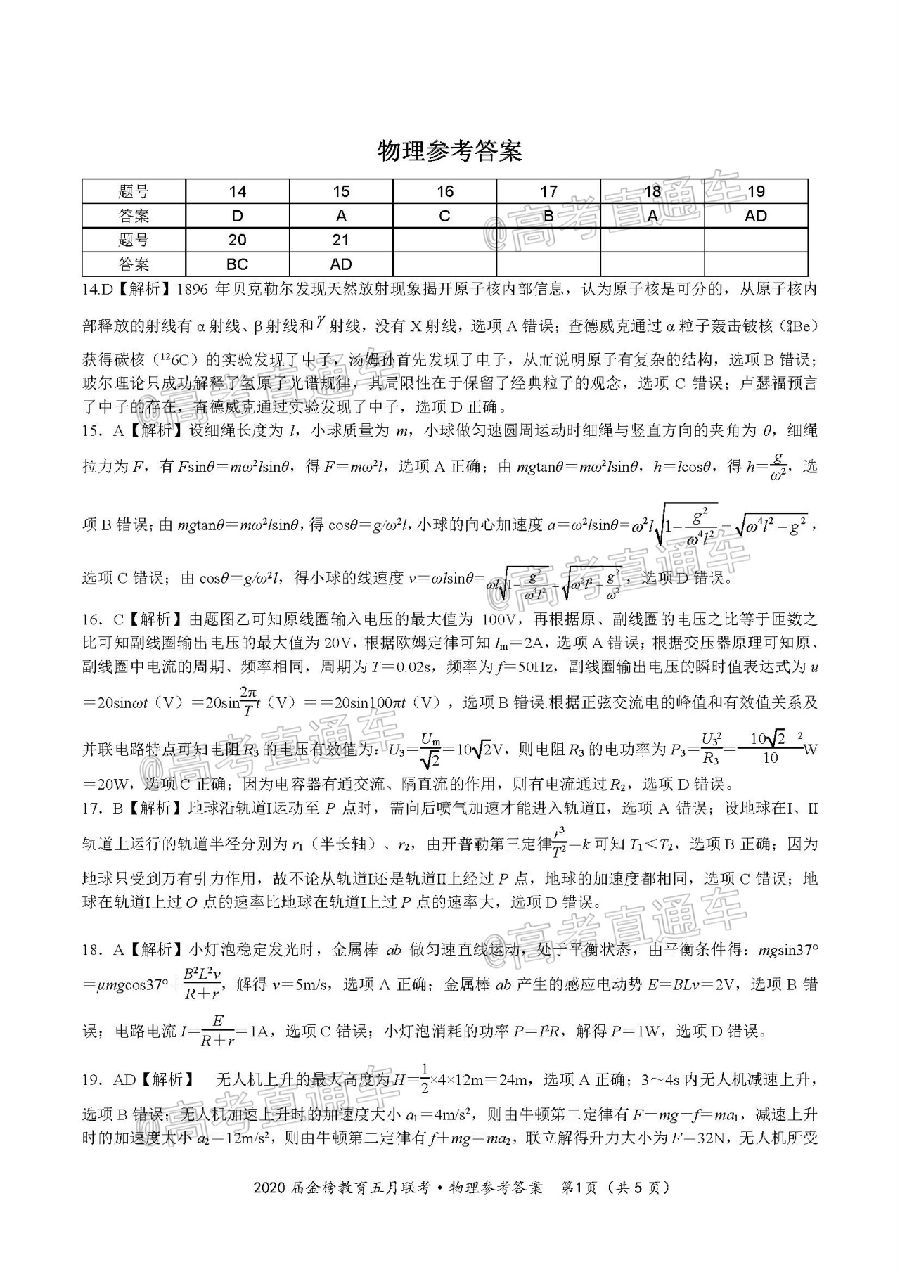 物理参考答案
题号 14 15 16 17 18 19
答案 D A C B A AD
题号 20 21
答案 BC AD
14.D【解析】1896 年贝克勒尔发现天然放射现象揭开原子核内部信息，认为原子核是可分的，从原子核内
部释放的射线有α射线、β射线和γ射线，没有X射线，选项A错误；查德威克通过α粒子轰击铍核（⁹₄Be）
获得碳核（¹²6C）的实验发现了中子，汤姆孙首先发现了中子，从而说明原子有复杂的结构，选项B错误；
玻尔理论只成功解释了氢原子光谱规律，其局限性在于保留了经典粒子的观念，选项 C 错误；卢瑟福预言
了中子的存在，查德威克通过实验发现了中子，选项D正确。
15．A【解析】设细绳长度为 l，小球质量为 m，小球做匀速圆周运动时细绳与竖直方向的夹角为 θ，细绳
拉力为 F，有 Fsinθ＝mω²lsinθ，得 F＝mω²l，选项 A 正确；由 mgtanθ＝mω²lsinθ，h＝lcosθ，得 h＝g/ω²，选
项B错误；由 mgtanθ＝mω²lsinθ，得 cosθ＝g/ω²l，小球的向心加速度 a＝ω²lsinθ＝ω²l√(1－g²/(ω⁴l²))＝√(ω⁴l²－g²)，
选项C错误；由 cosθ＝g/ω²l，得小球的线速度 v＝ωlsinθ＝ωl√(1－g²/(ω⁴l²))＝√(ω²l²－g²/ω²)，选项D错误。
16．C【解析】由题图乙可知原线圈输入电压的最大值为 100V，再根据原、副线圈的电压之比等于匝数之
比可知副线圈输出电压的最大值为20V，根据欧姆定律可知 Im＝2A，选项A错误；根据变压器原理可知原、
副线圈中电流的周期、频率相同，周期为T＝0.02s，频率为f＝50Hz，副线圈输出电压的瞬时值表达式为u
＝20sinωt（V）＝20sin2π/T t（V）＝＝20sin100πt（V），选项B错误.根据正弦交流电的峰值和有效值关系及
并联电路特点可知电阻R₃的电压有效值为：U₃＝Um/√2＝10√2V，则电阻R₃的电功率为P₃＝U₃²/R₃＝10√2 ²/10 W
＝20W，选项C正确；因为电容器有通交流、隔直流的作用，则有电流通过R₂，选项D错误。
17．B【解析】地球沿轨道Ⅰ运动至 P 点时，需向后喷气加速才能进入轨道Ⅱ，选项 A 错误；设地球在Ⅰ、Ⅱ
轨道上运行的轨道半径分别为 r₁（半长轴）、r₂，由开普勒第三定律r³/T²＝k可知 T₁＜T₂，选项B正确；因为
地球只受到万有引力作用，故不论从轨道Ⅰ还是轨道Ⅱ上经过P点，地球的加速度都相同，选项C错误；地
球在轨道Ⅰ上过O点的速率比地球在轨道Ⅰ上过P点的速率大，选项D错误。
18．A【解析】小灯泡稳定发光时，金属棒 ab 做匀速直线运动，处于平衡状态，由平衡条件得：mgsin37°
＝μmgcos37° B²L²v/(R＋r)，解得 v＝5m/s，选项 A 正确；金属棒 ab 产生的感应电动势 E＝BLv＝2V，选项 B 错
误；电路电流 I＝E/(R＋r)＝1A，选项C错误；小灯泡消耗的功率P＝I²R，解得P＝1W，选项D错误。
19．AD【解析】 无人机上升的最大高度为H＝1/2×4×12m＝24m，选项A正确；3～4s内无人机减速上升，
选项B错误；无人机加速上升时的加速度大小 a₁＝4m/s²，则由牛顿第二定律有 F－mg－f＝ma₁，减速上升
时的加速度大小 a₂＝12m/s²，则由牛顿第二定律有 f＋mg＝ma₂，联立解得升力大小为 F＝32N，无人机所受
2020 届金榜教育五月联考·物理参考答案 第1页（共 5 页）
@高考直通车
@高考直通车
@高考直通车
@高考直通车
@高考直通车
@高考直通车